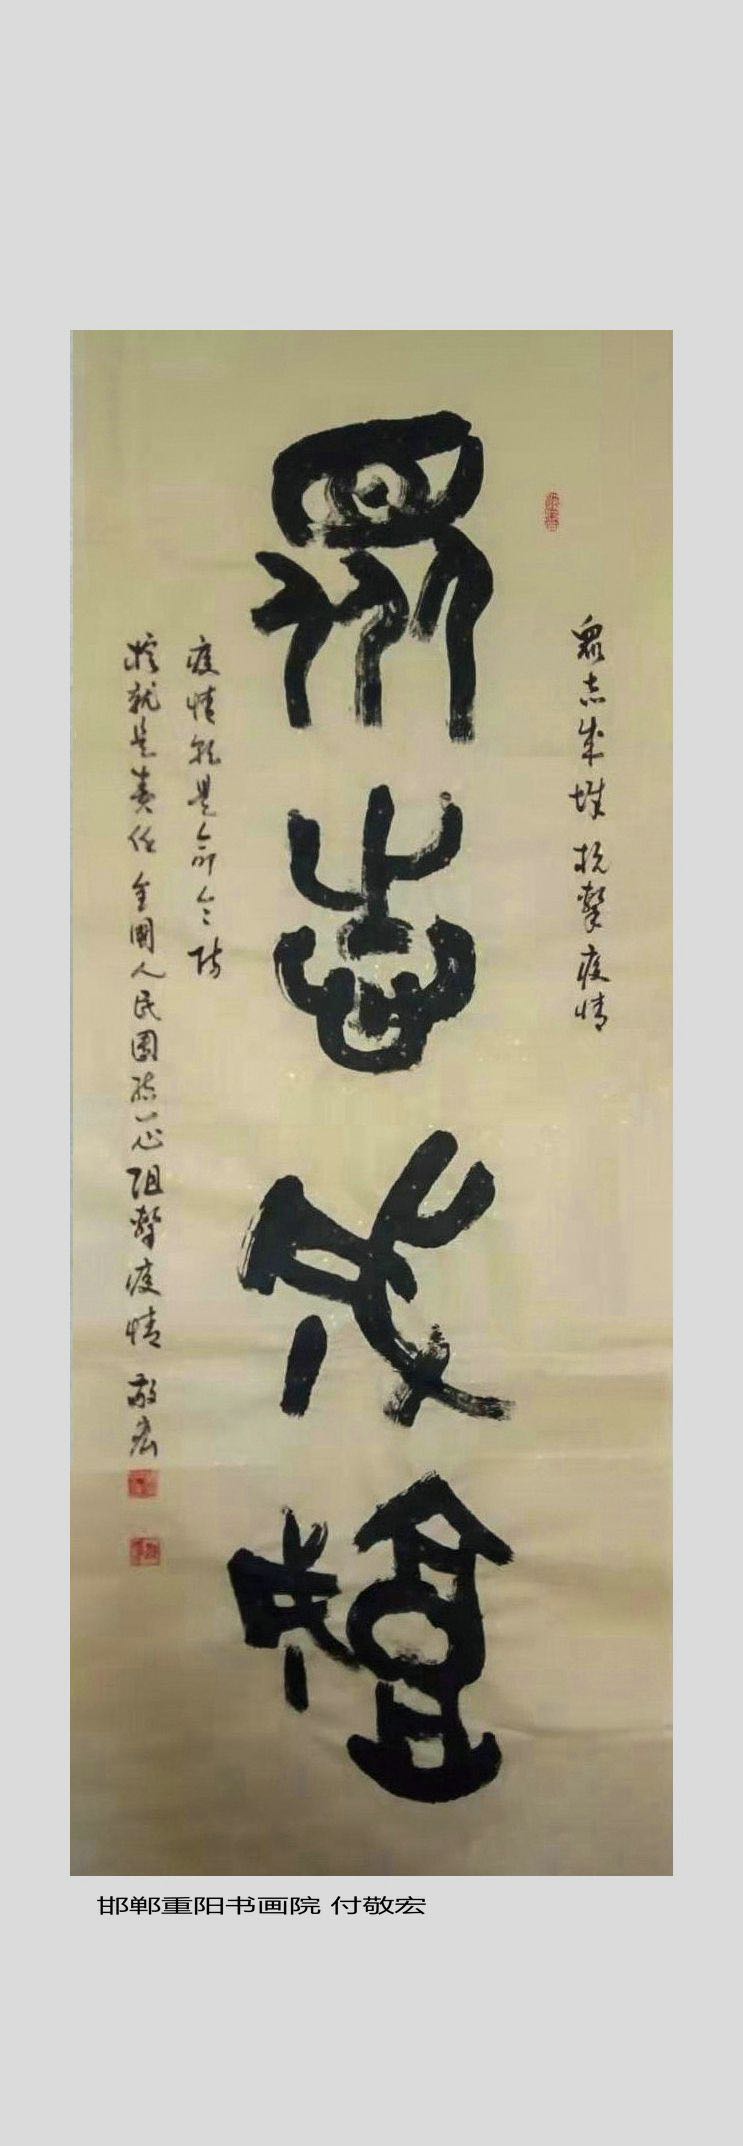 眾志成城 抗擊疫情
眾志成城
疫情就是命令防
控就是責任 全國人民團結一心阻擊疫情 敬宏
邯郸重阳书画院 付敬宏